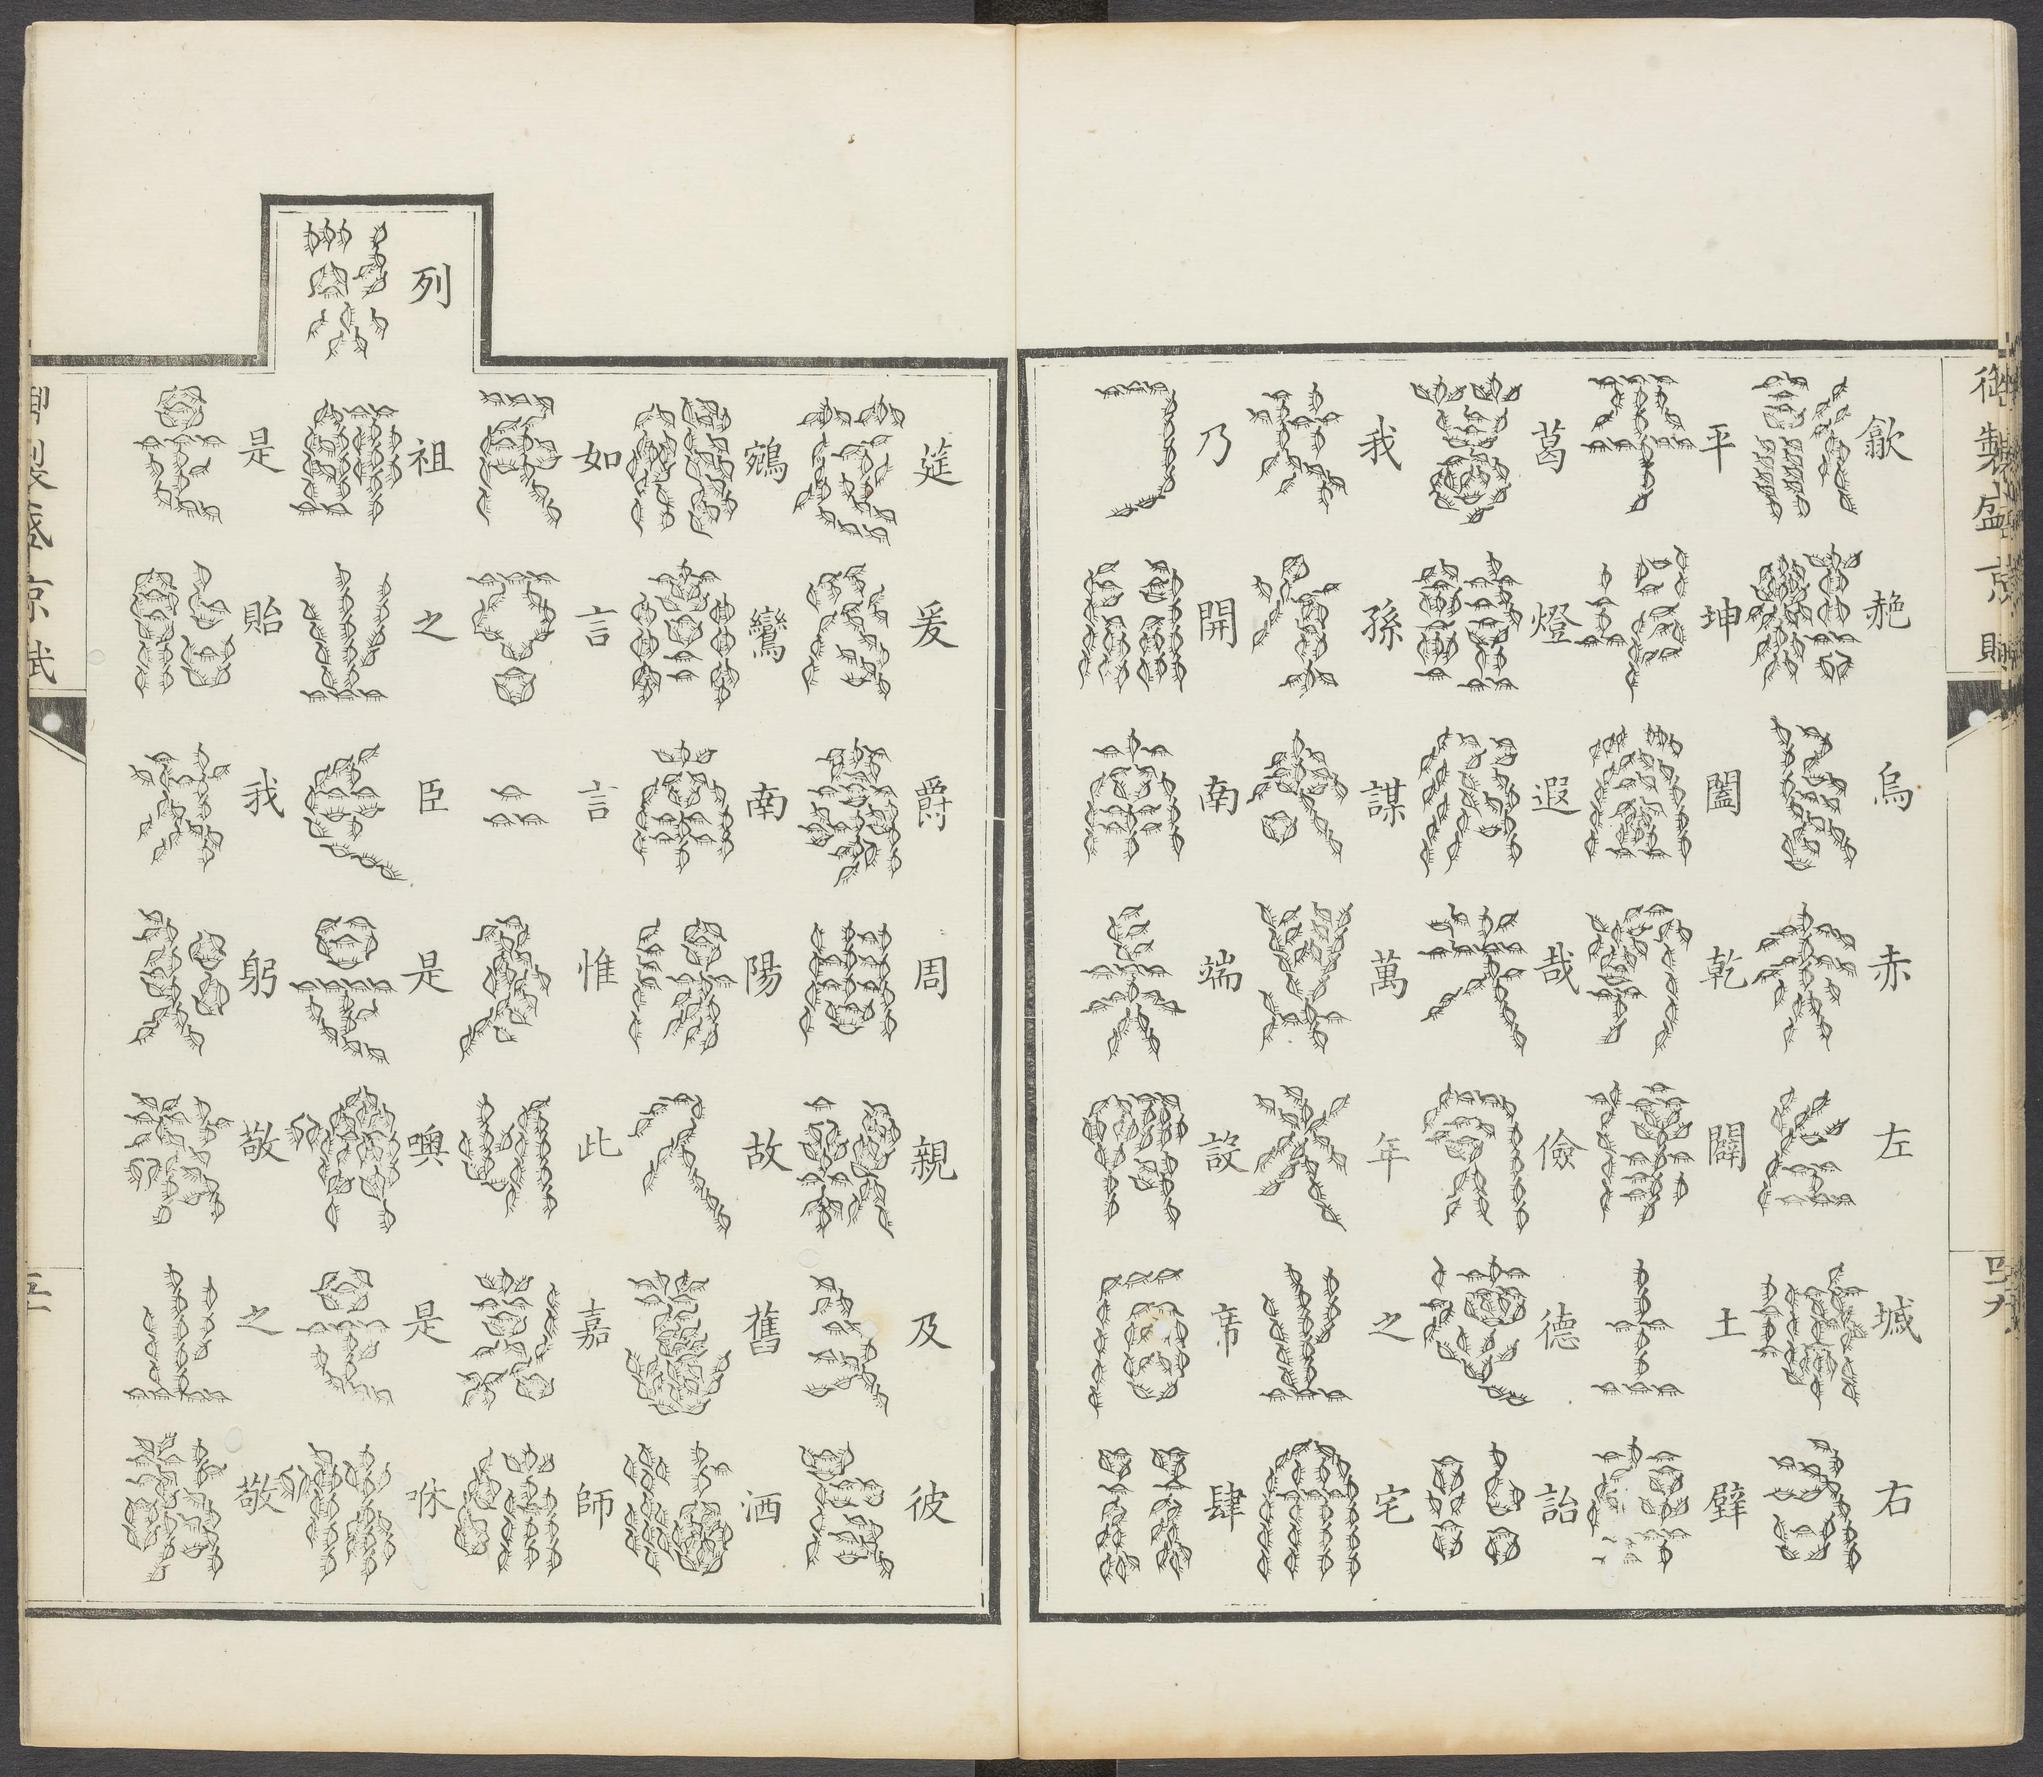 御製盛京賦
四九
歙赩烏赤左墄右
平坤闔乾闢土壁
葛燈遐哉儉德詒
我孫謀萬年之宅
乃開南端設席肆
筵爰爵周親及彼
鵷鸞南陽故舊酒
如言言惟此嘉師
列祖之臣是噢是咻
是貽我躬敬之敬
御製盛京賦